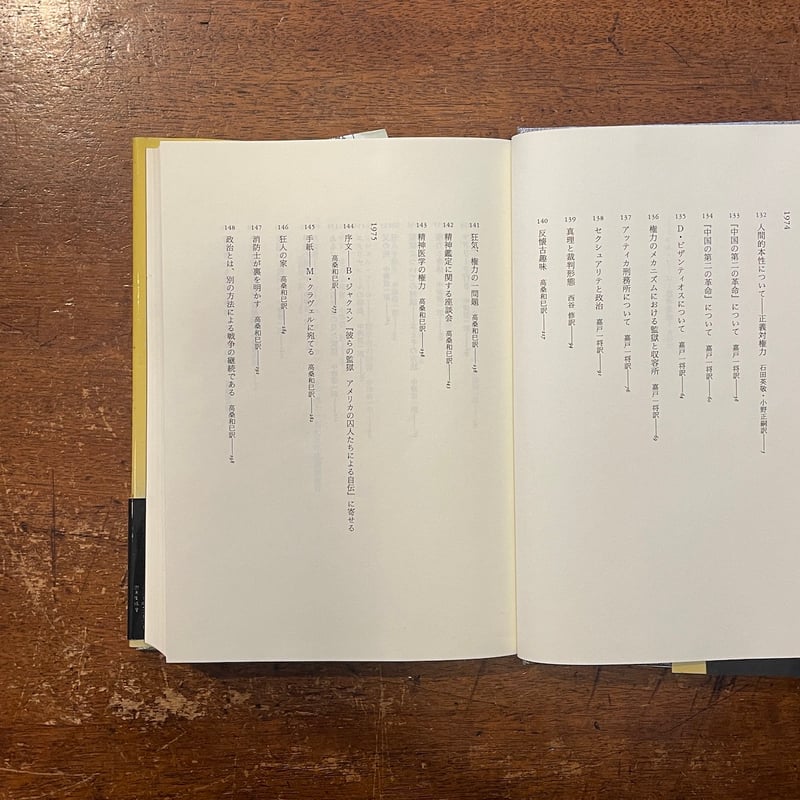 1974
132 人間的本性について――正義対権力 石田英敬・小野正嗣訳――7
133 『中国の第二の革命』について 嘉戸一将訳――
134 『中国の第二の革命』について 嘉戸一将訳――
135 D・ビザンティオスについて 嘉戸一将訳――
136 権力のメカニズムにおける監獄と収容所 嘉戸一将訳――
137 アッティカ刑務所について 嘉戸一将訳――
138 セクシュアリテと政治 嘉戸一将訳――
139 真理と裁判形態 西谷修訳――
140 反懐古趣味 高桑和巳訳――
141 狂気、権力の一問題 高桑和巳訳――
142 精神鑑定に関する座談会 高桑和巳訳――
143 精神医学の権力 高桑和巳訳――
1975
144 序文――B・ジャクスン『彼らの監獄 アメリカの囚人たちによる自伝』に寄せる
高桑和巳訳――
145 手紙――M・クラヴェルに宛てる 高桑和巳訳――
146 狂人の家 高桑和巳訳――
147 消防士が裏を明かす 高桑和巳訳――
148 政治とは、別の方法による戦争の継続である 高桑和巳訳――